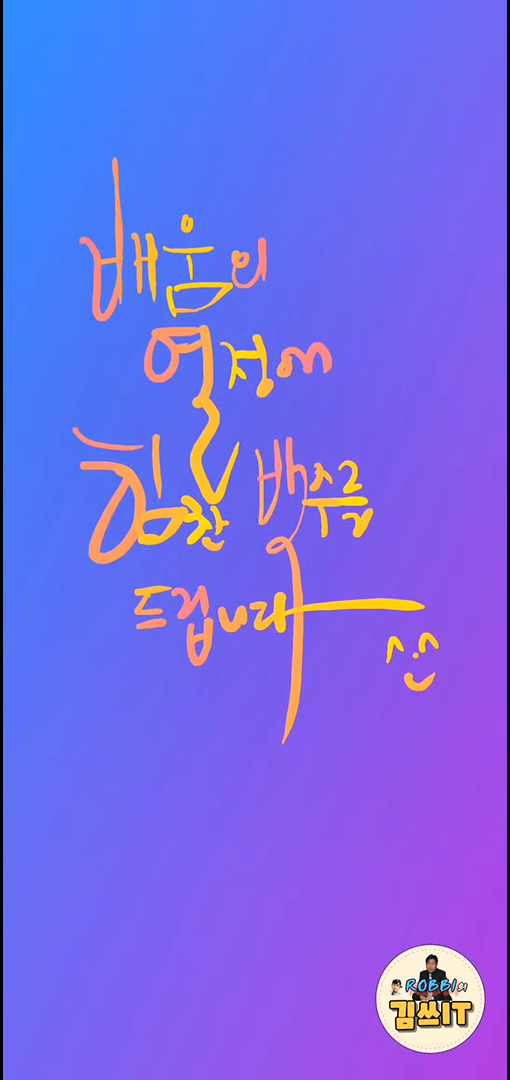 배움의
열정에
힘찬 박수를
드립니다
^.^
ROBBI의
김쓰IT